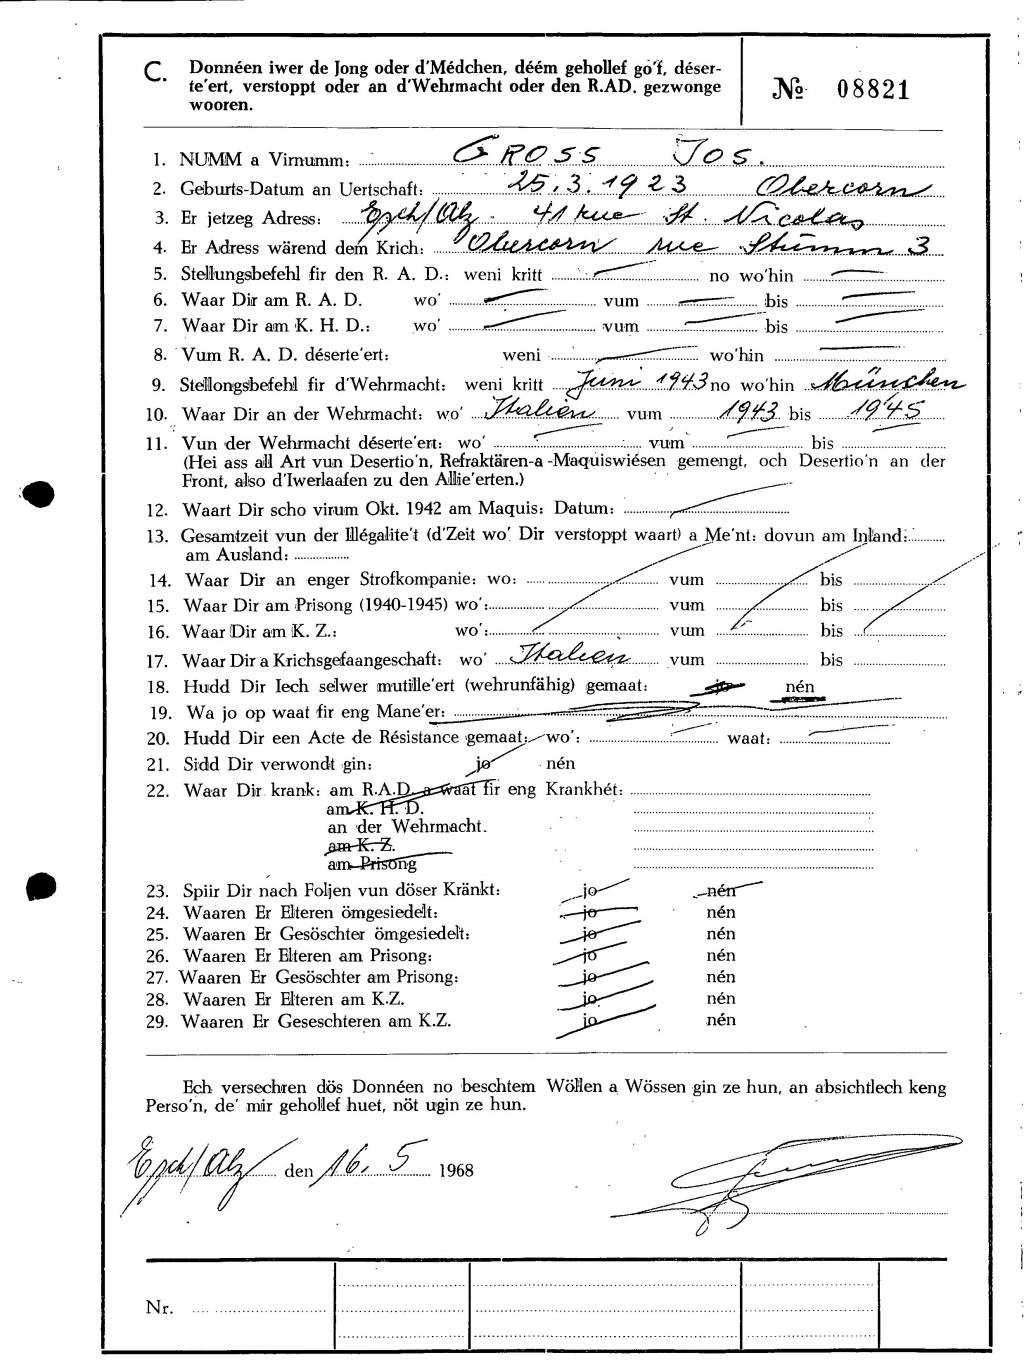 C. Donnéen iwer de Jong oder d'Médchen, déém gehollef go'f, déser-
te'ert, verstoppt oder an d'Wehrmacht oder den R.AD. gezwonge
wooren.
№ 08821
1. NUMM a Virnumm: GROSS Jos.
2. Geburts-Datum an Uertschaft: 25.3.1923 Obercorn
3. Er jetzeg Adress: Esch/Alz. 41 rue St. Nicolas
4. Er Adress wärend dem Krich: Obercorn rue Stumm 3
5. Stellungsbefehl fir den R. A. D.: weni kritt no wo'hin
6. Waar Dir am R. A. D. wo' vum bis
7. Waar Dir am K. H. D.: wo' vum bis
8. Vum R. A. D. déserte'ert: weni wo'hin
9. Stellongsbefehl fir d'Wehrmacht: weni kritt Juni 1943 no wo'hin München
10. Waar Dir an der Wehrmacht: wo' Italien vum 1943 bis 1945
11. Vun der Wehrmacht déserte'ert: wo' vum bis
(Hei ass all Art vun Desertio'n, Refraktären-a-Maquiswiésen gemengt, och Desertio'n an der
Front, also d'Iwerlaafen zu den Allie'erten.)
12. Waart Dir scho virum Okt. 1942 am Maquis: Datum:
13. Gesamtzeit vun der Illégalite't (d'Zeit wo' Dir verstoppt waart) a Me'nt: dovun am Inland:
am Ausland:
14. Waar Dir an enger Strofkompanie: wo: vum bis
15. Waar Dir am Prisong (1940-1945) wo': vum bis
16. Waar Dir am K. Z.: wo': vum bis
17. Waar Dir a Krichsgefaangeschaft: wo' Italien vum bis
18. Hudd Dir Iech selwer mutille'ert (wehrunfähig) gemaat: jo nén
19. Wa jo op waat fir eng Mane'er:
20. Hudd Dir een Acte de Résistance gemaat: wo': waat:
21. Sidd Dir verwondt gin: jo nén
22. Waar Dir krank: am R.A.D. a waat fir eng Krankhét:
am K. H. D.
an der Wehrmacht.
am K. Z.
am Prisong
23. Spiir Dir nach Foljen vun döser Kränkt: jo nén
24. Waaren Er Elteren ömgesiedelt: jo nén
25. Waaren Er Gesöschter ömgesiedelt: jo nén
26. Waaren Er Elteren am Prisong: jo nén
27. Waaren Er Gesöschter am Prisong: jo nén
28. Waaren Er Elteren am K.Z. jo nén
29. Waaren Er Geseschteren am K.Z. jo nén
Ech versechren dös Donnéen no beschtem Wöllen a Wössen gin ze hun, an absichtlech keng
Perso'n, de' mir gehollef huet, nöt ugin ze hun.
Esch/Alz den 16. 5 1968
Nr.